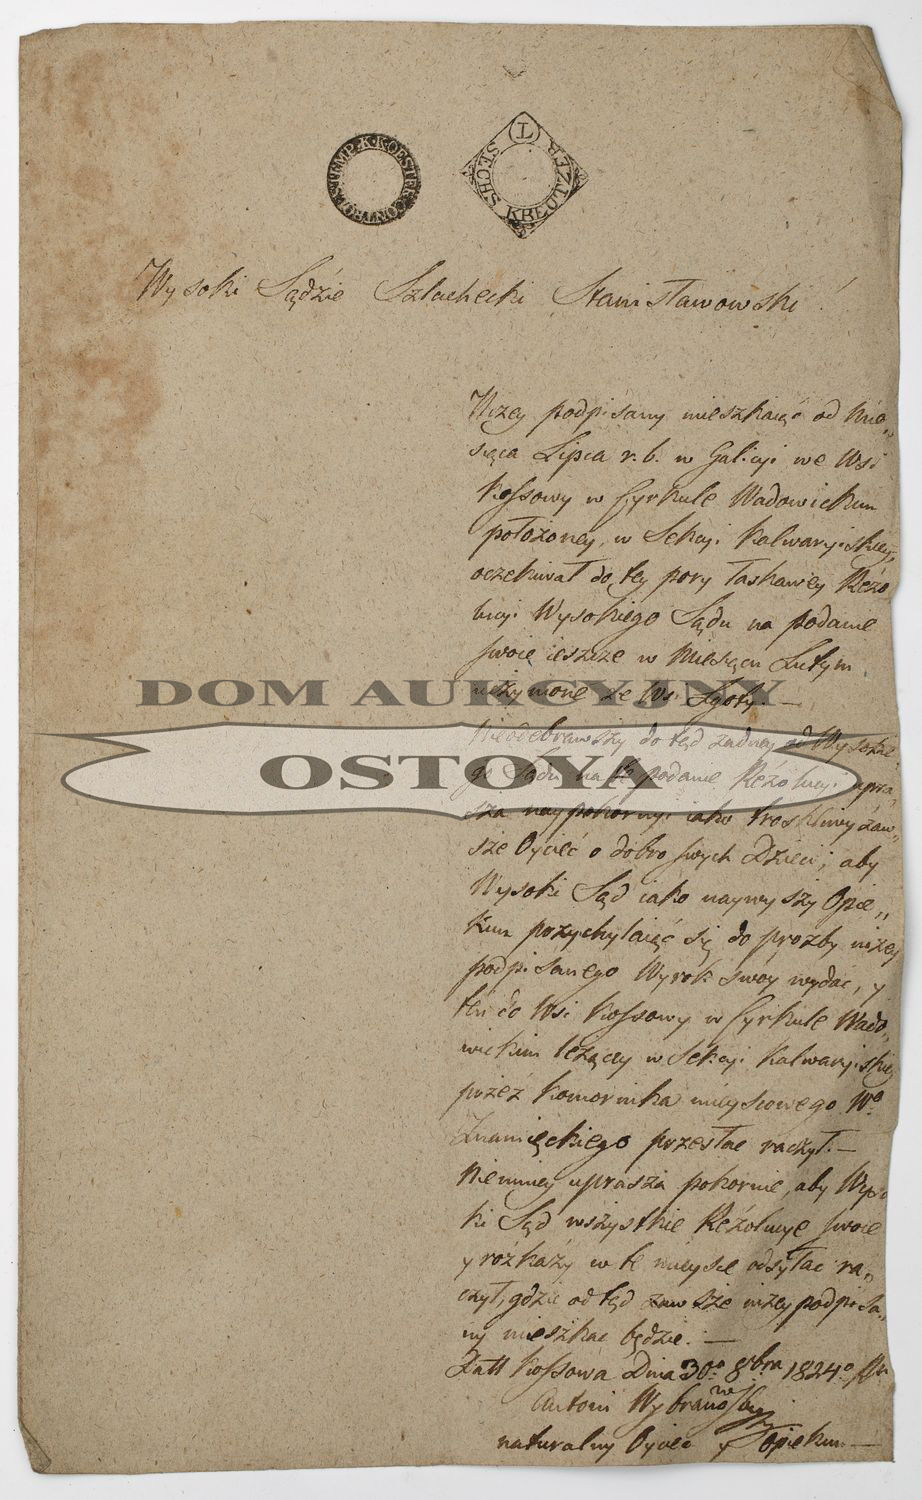 STEMP. K. K. OESTER. CONTROL
T SECHS KREUTZER
Wysoki Sądzie Szlachecki Stanisławowski!
Niżey podpisany mieszkaiąc od Mie„
siąca Lipca r.b. w Galicyi we Wsi
Kossowy w Cyrkule Wadowickim
położoney, w Sekcyi Kalwaryiskiey,
oczekiwał do tey pory łaskawey Rezo
lucyi Wysokiego Sądu na podanie
swoie ieszcze w Miesiącu Lutym
uczynione ze Wsi Zgoty. —
DOM AUKCYJNY
Nieodebrawszy do tąd żadney od Wysokie
OSTOYA
go Sądu na te podanie Rezolucyi upra„
sza naypokorniy iako troskliwy zaw„
sze Oyciec o dobro swych Dzieci; aby
Wysoki Sąd iako naywyższy Opie„
kun przychylaiąc się do prozby niżey
podpisanego Wyrok swoy wydać, y
ten do Wsi Kossowy w Cyrkule Wado„
wickim leżącey w Sekcyi Kalwaryiskiey
przez Komornika mieyscowego Wo
Znamięckiego przesłac raczył. —
Niemniey uprasza pokornie, aby Wyso
ki Sąd wszystkie Rezolucye swoie
y rozkazy w te mieysce odsyłac ra„
czył, gdzie od tąd zawsze niżey podpisa„
ny mieszkac będzie. —
Datt Kossowa Dnia 30o 8bra 1824o
Antoni Wybranowski
naturalny Oyciec y Opiekun —